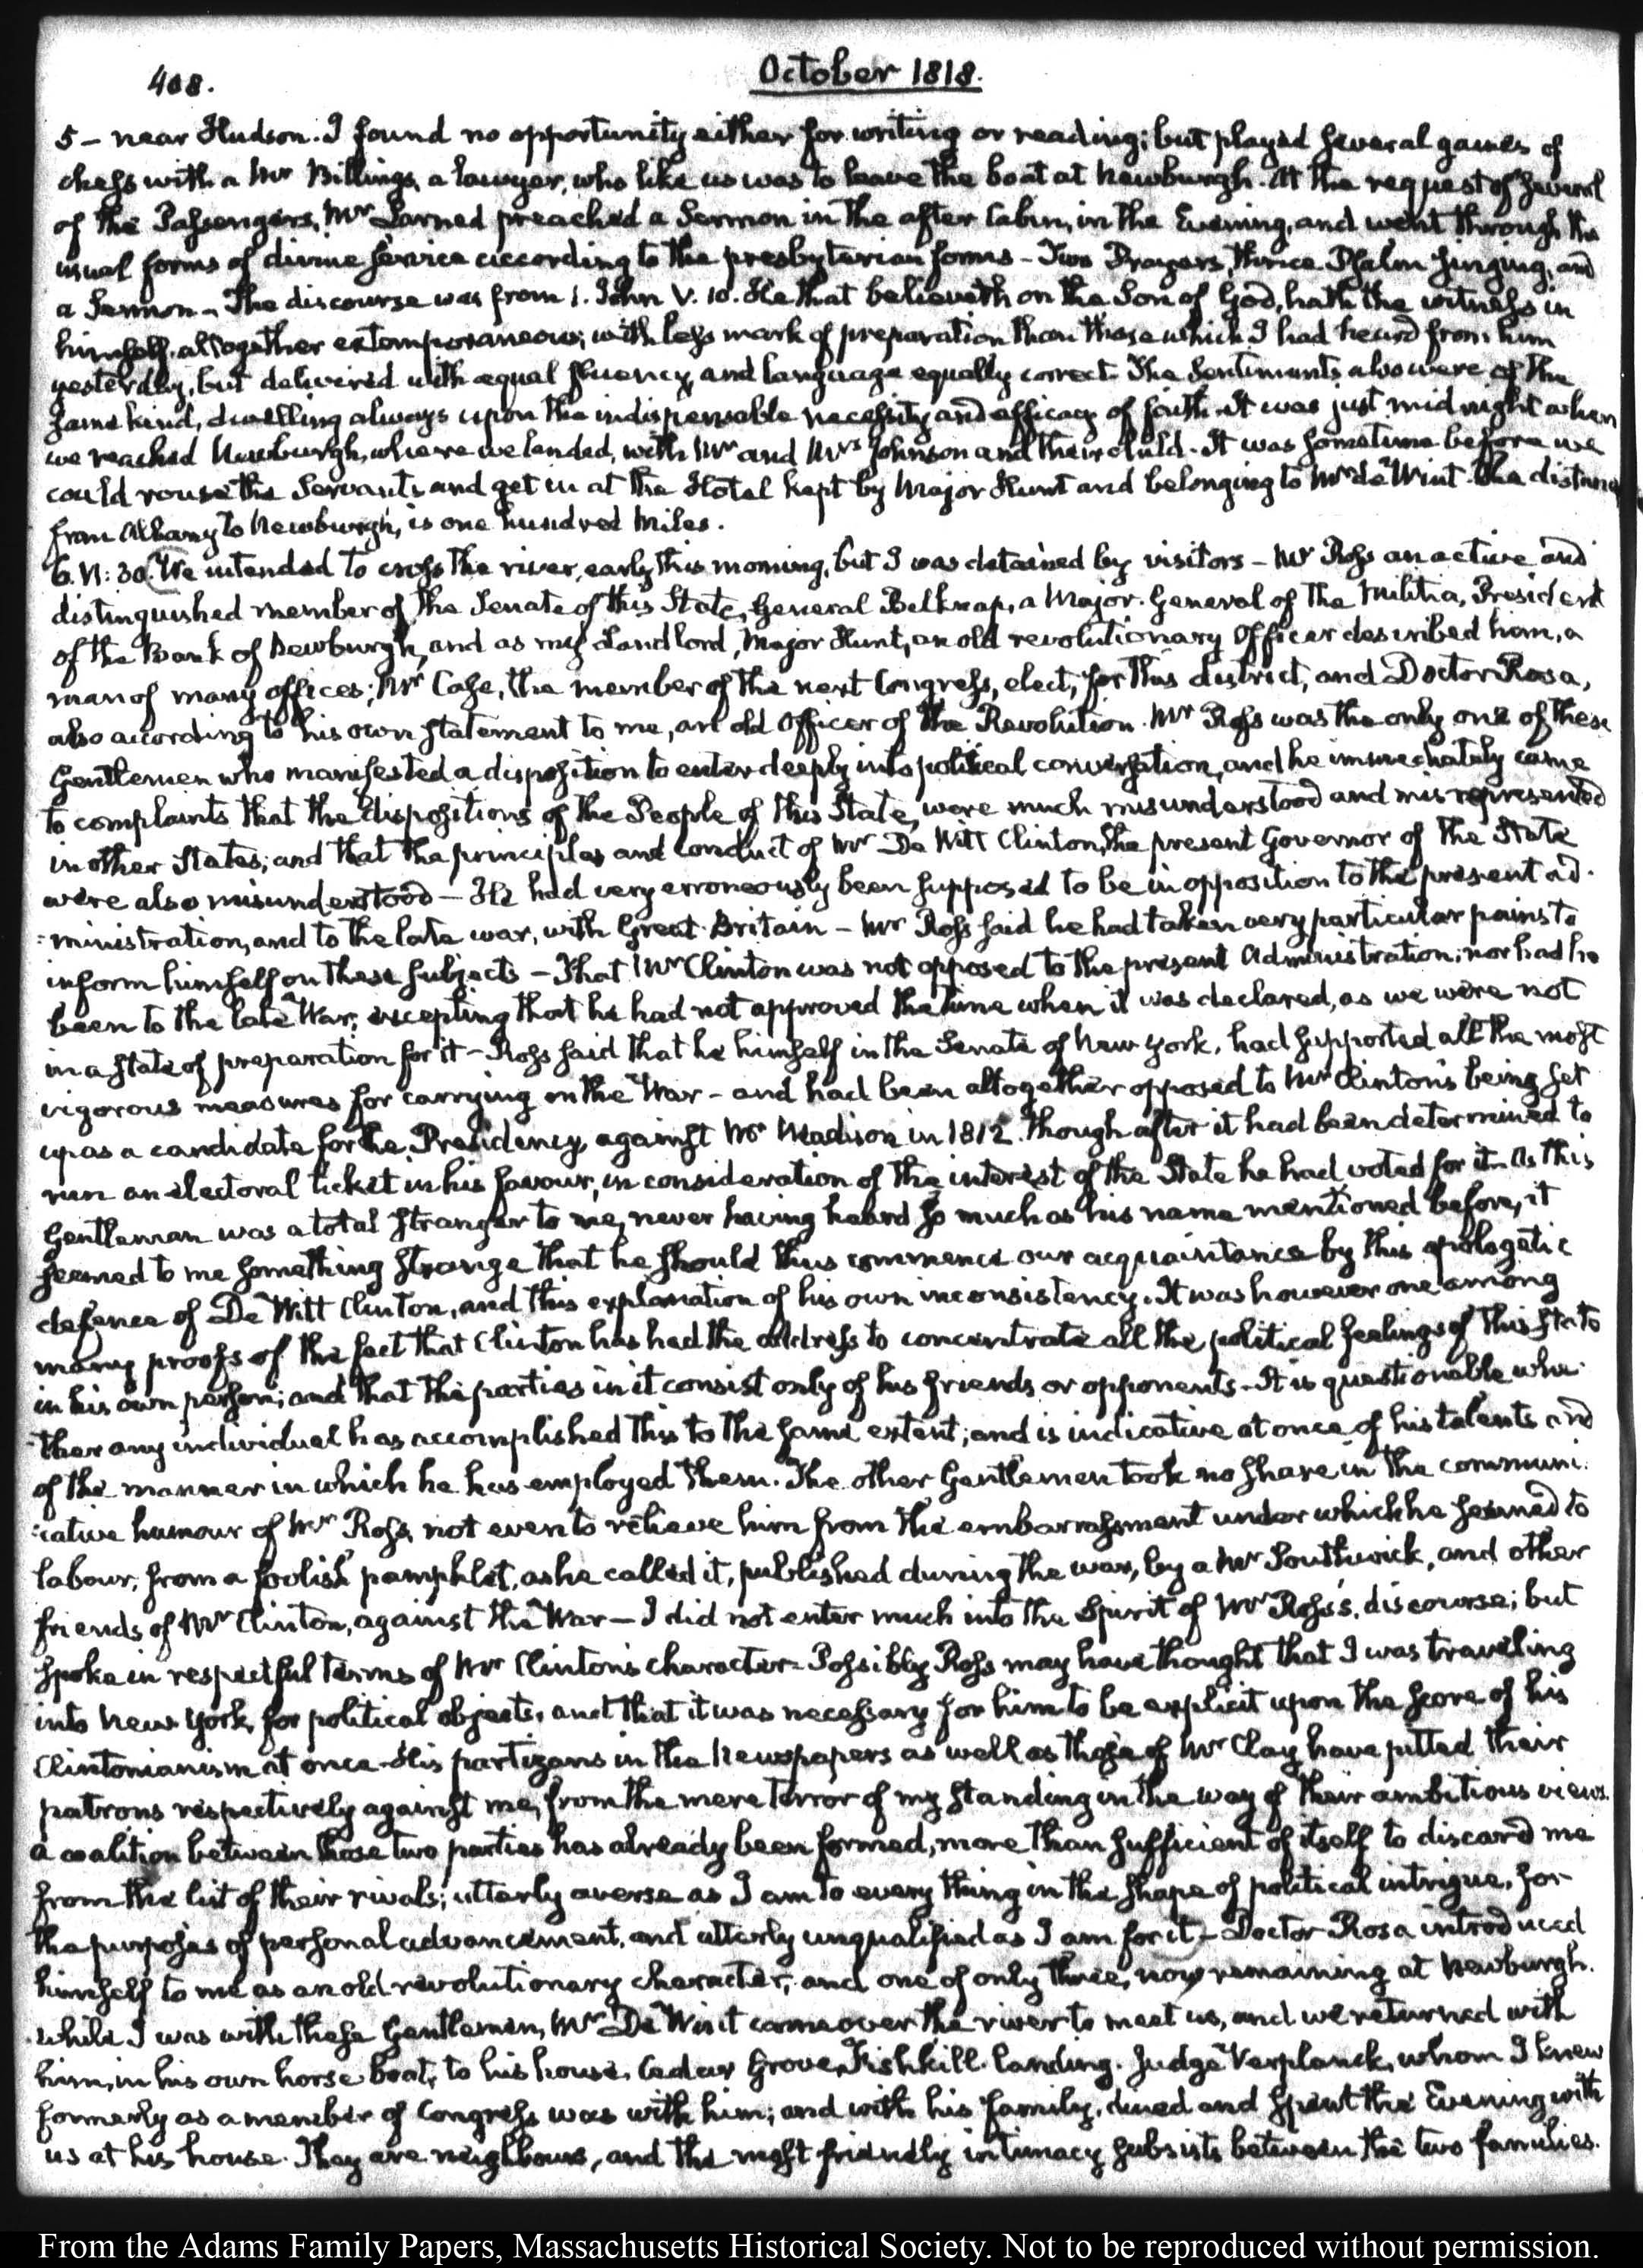 408.
October 1818.
5 - near Hudson. I found no opportunity either for writing or reading; but played several games of
chess with a Mr Billings, a lawyer, who like us was to leave the boat at Newburgh. At the request of several
of the Passengers, Mr Larned preached a Sermon in the after Cabin, in the Evening, and went through the
usual forms of divine service according to the presbyterian forms - Two Prayers, thrice Psalm singing, and
a Sermon - The discourse was from 1. John V. 10. He that believeth on the Son of God, hath the witness in
himself. altogether extemporaneous; with less mark of preparation than those which I had heard from him
yesterday, but delivered with equal fluency, and language equally correct. The Sentiments also were of the
same kind, dwelling always upon the indispensable necessity and efficacy of faith. It was just midnight when
we reached Newburgh, where we landed, with Mr and Mrs Johnson and their child. It was sometime before we
could rouse the Servants and get in at the Hotel kept by Major Hunt and belonging to Mr de Wint. The distance
from Albany to Newburgh, is one hundred Miles.
6. VI: 30. We intended to cross the river, early this morning, but I was detained by visitors - Mr Ross an active and
distinguished member of the Senate of this State, General Belknap, a Major-General of the Militia, President
of the Bank of Newburgh, and as my Landlord, Major Hunt, an old revolutionary Officer described him, a
man of many offices; Mr Case, the member of the next Congress, elect, for this district, and Doctor Rosa,
also according to his own statement to me, an old Officer of the Revolution. Mr Ross was the only one of these
Gentlemen who manifested a disposition to enter deeply into political conversation, and he immediately came
to complaints that the dispositions of the People of this State, were much misunderstood and misrepresented
in other States; and that the principles and conduct of Mr De Witt Clinton, the present Governor of the State
were also misunderstood - He had very erroneously been supposed to be in opposition to the present ad-
:ministration, and to the late war, with Great-Britain - Mr Ross said he had taken very particular pains to
inform himself on these subjects - That Mr Clinton was not opposed to the present Administration; nor had he
been to the late War; excepting that he had not approved the time when it was declared, as we were not
in a state of preparation for it - Ross said that he himself in the Senate of New York, had supported all the most
vigorous measures for carrying on the War - and had been altogether opposed to Mr Clinton's being set
up as a candidate for the Presidency, against Mr Madison in 1812. though after it had been determined to
run an electoral ticket in his favour, in consideration of the interest of the State he had voted for it. As this
Gentleman was a total stranger to me, never having heard so much as his name mentioned before, it
seemed to me something strange that he should thus commence our acquaintance by this apologetic
defence of De Witt Clinton, and this explanation of his own inconsistency. It was however one among
many proofs of the fact that Clinton has had the address to concentrate all the political feelings of this State
in his own person; and that the parties in it consist only of his friends or opponents - It is questionable whe-
ther any individual has accomplished this to the same extent; and is indicative at once of his talents and
of the manner in which he has employed them. The other Gentlemen took no share in the communi:
:cative humour of Mr Ross, not even to relieve him from the embarrassment under which he seemed to
labour, from a foolish pamphlet, as he called it, published during the war, by a Mr Southwick, and other
friends of Mr Clinton, against the War - I did not enter much into the Spirit of Mr Ross's, discourse; but
spoke in respectful terms of Mr Clinton's character - Possibly Ross may have thought that I was traveling
into New York, for political objects, and that it was necessary for him to be explicit upon the score of his
Clintonianism at once - His partizans in the Newspapers as well as those of Mr Clay have pitted their
patrons respectively against me, from the mere terror of my standing in the way of their ambitious views.
a coalition between those two parties has already been formed, more than sufficient of itself to discard me
from the list of their rivals; utterly averse as I am to every thing in the shape of political intrigue, for
the purposes of personal advancement, and utterly unqualified as I am for it - Doctor Rosa introduced
himself to me as an old revolutionary character; and one of only three, now remaining at Newburgh.
while I was with these Gentlemen, Mr De Wint came over the river to meet us, and we returned with
him, in his own horse-boat, to his house, Cedar Grove, Fishkill-landing. Judge Verplanck, whom I knew
formerly as a member of Congress was with him; and with his family, dined and spent the Evening with
us at his house. They are neighbours, and the most friendly intimacy subsists between the two families.
From the Adams Family Papers, Massachusetts Historical Society. Not to be reproduced without permission.